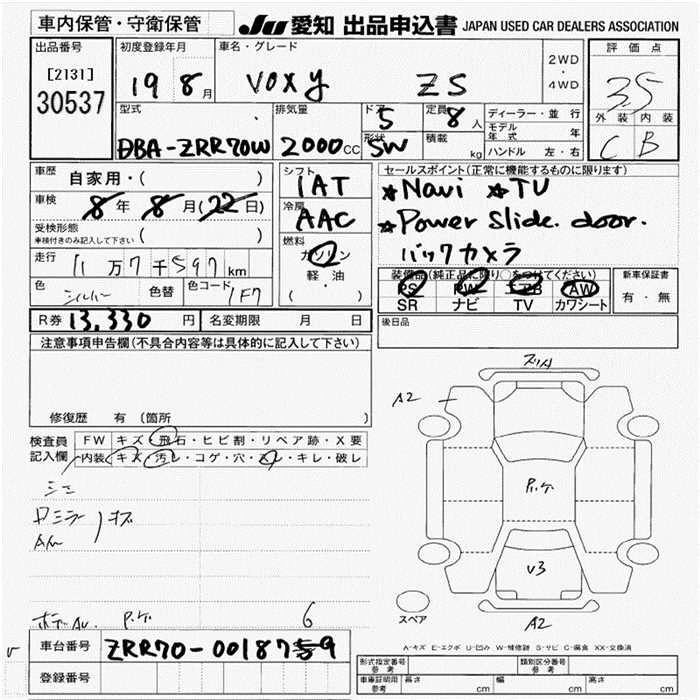 車内保管・守衛保管 JU 愛知 出品申込書 JAPAN USED CAR DEALERS ASSOCIATION
出品番号 初度登録年月 車名・グレード 2WD・4WD 評価点
[2131] 30537 19 8月 VOXY ZS 3.5
型式 排気量 ドア 5 定員 8人 ディーラー・並行 外装 内装
DBA-ZRR70W 2000cc 形状 SW 積載 kg モデル年式 年 C B
ハンドル 左・右
車歴 自家用・( ) シフト 1AT セールスポイント(正常に機能するものに限ります)
車検 8年 8月(22日) 冷房 AAC ★Navi ★TV
受検形態 車検付きのみ記入して下さい ( ) ★Power Slide. door.
走行 11万7千597km 燃料 ガソリン 軽・油 ( ・ ) バックカメラ
色 シルバー 色替 色コード 1F7 装備品(純正品に限り○をつけてください) 新車保証書
PS PW エアB AW 有・無
SR ナビ TV カワシート
R券 13,330円 名変期限 月 日 後日品
注意事項申告欄(不具合内容等は具体的に記入して下さい)
修復歴 有 (箇所 )
検査員記入欄 FW キズ・飛石・ヒビ割・リペア跡・X要
内装 キズ・汚レ・コゲ・穴・スレ・キレ・破レ
A2
P.ケ
V3
スペア A2
P.ケ 6
A-キズ E-エクボ U-凹み W-補修跡 S-サビ C-腐食 XX-交換済
車台番号 ZRR70-0018789
登録番号
形式指定番号 参考 類別区分番号 参考
車庫証明用 参考 長さ cm 幅 cm 高さ cm